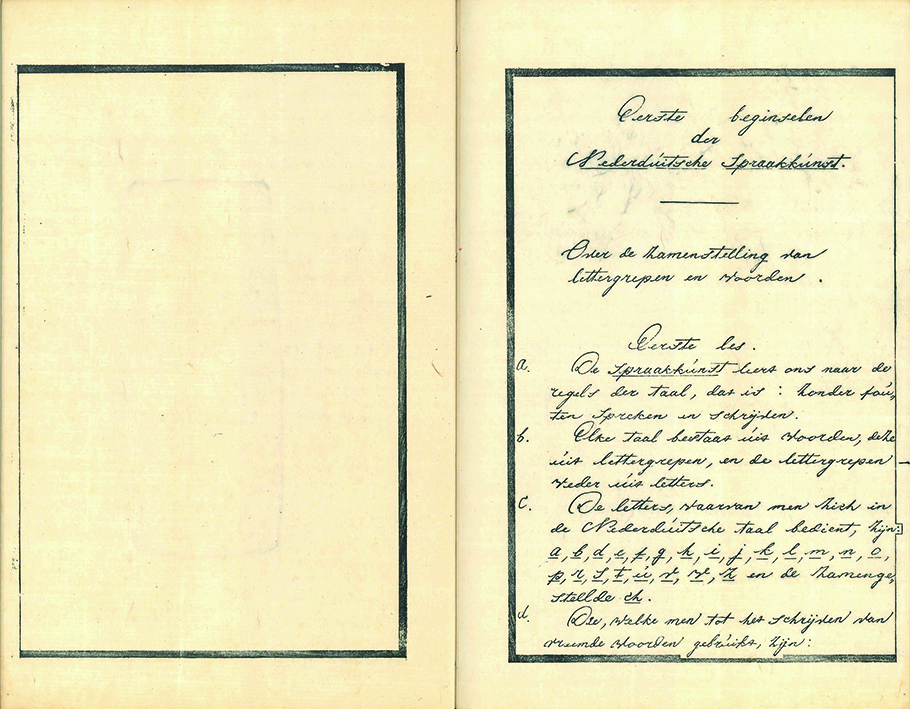 Eerste beginselen
der
Nederduitsche Spraakkunst.
Over de zamenstelling van
lettergrepen en woorden.
Eerste les.
a. De Spraakkunst leert ons naar de
regels der taal, dat is: zonder fou,
ten spreken en schrijven.
b. Elke taal bestaat uit woorden, deze
uit lettergrepen, en de lettergrepen
weder uit letters.
c. De letters, waarvan men zich in
de Nederduitsche taal bedient, zijn:
a, b, d, e, f, g, h, i, j, k, l, m, n, o,
p, r, s, t, u, v, w, z en de zamenge,
stellde ch.
d. Die, welke men tot het schrijven van
vreemde woorden gebruikt, zijn: